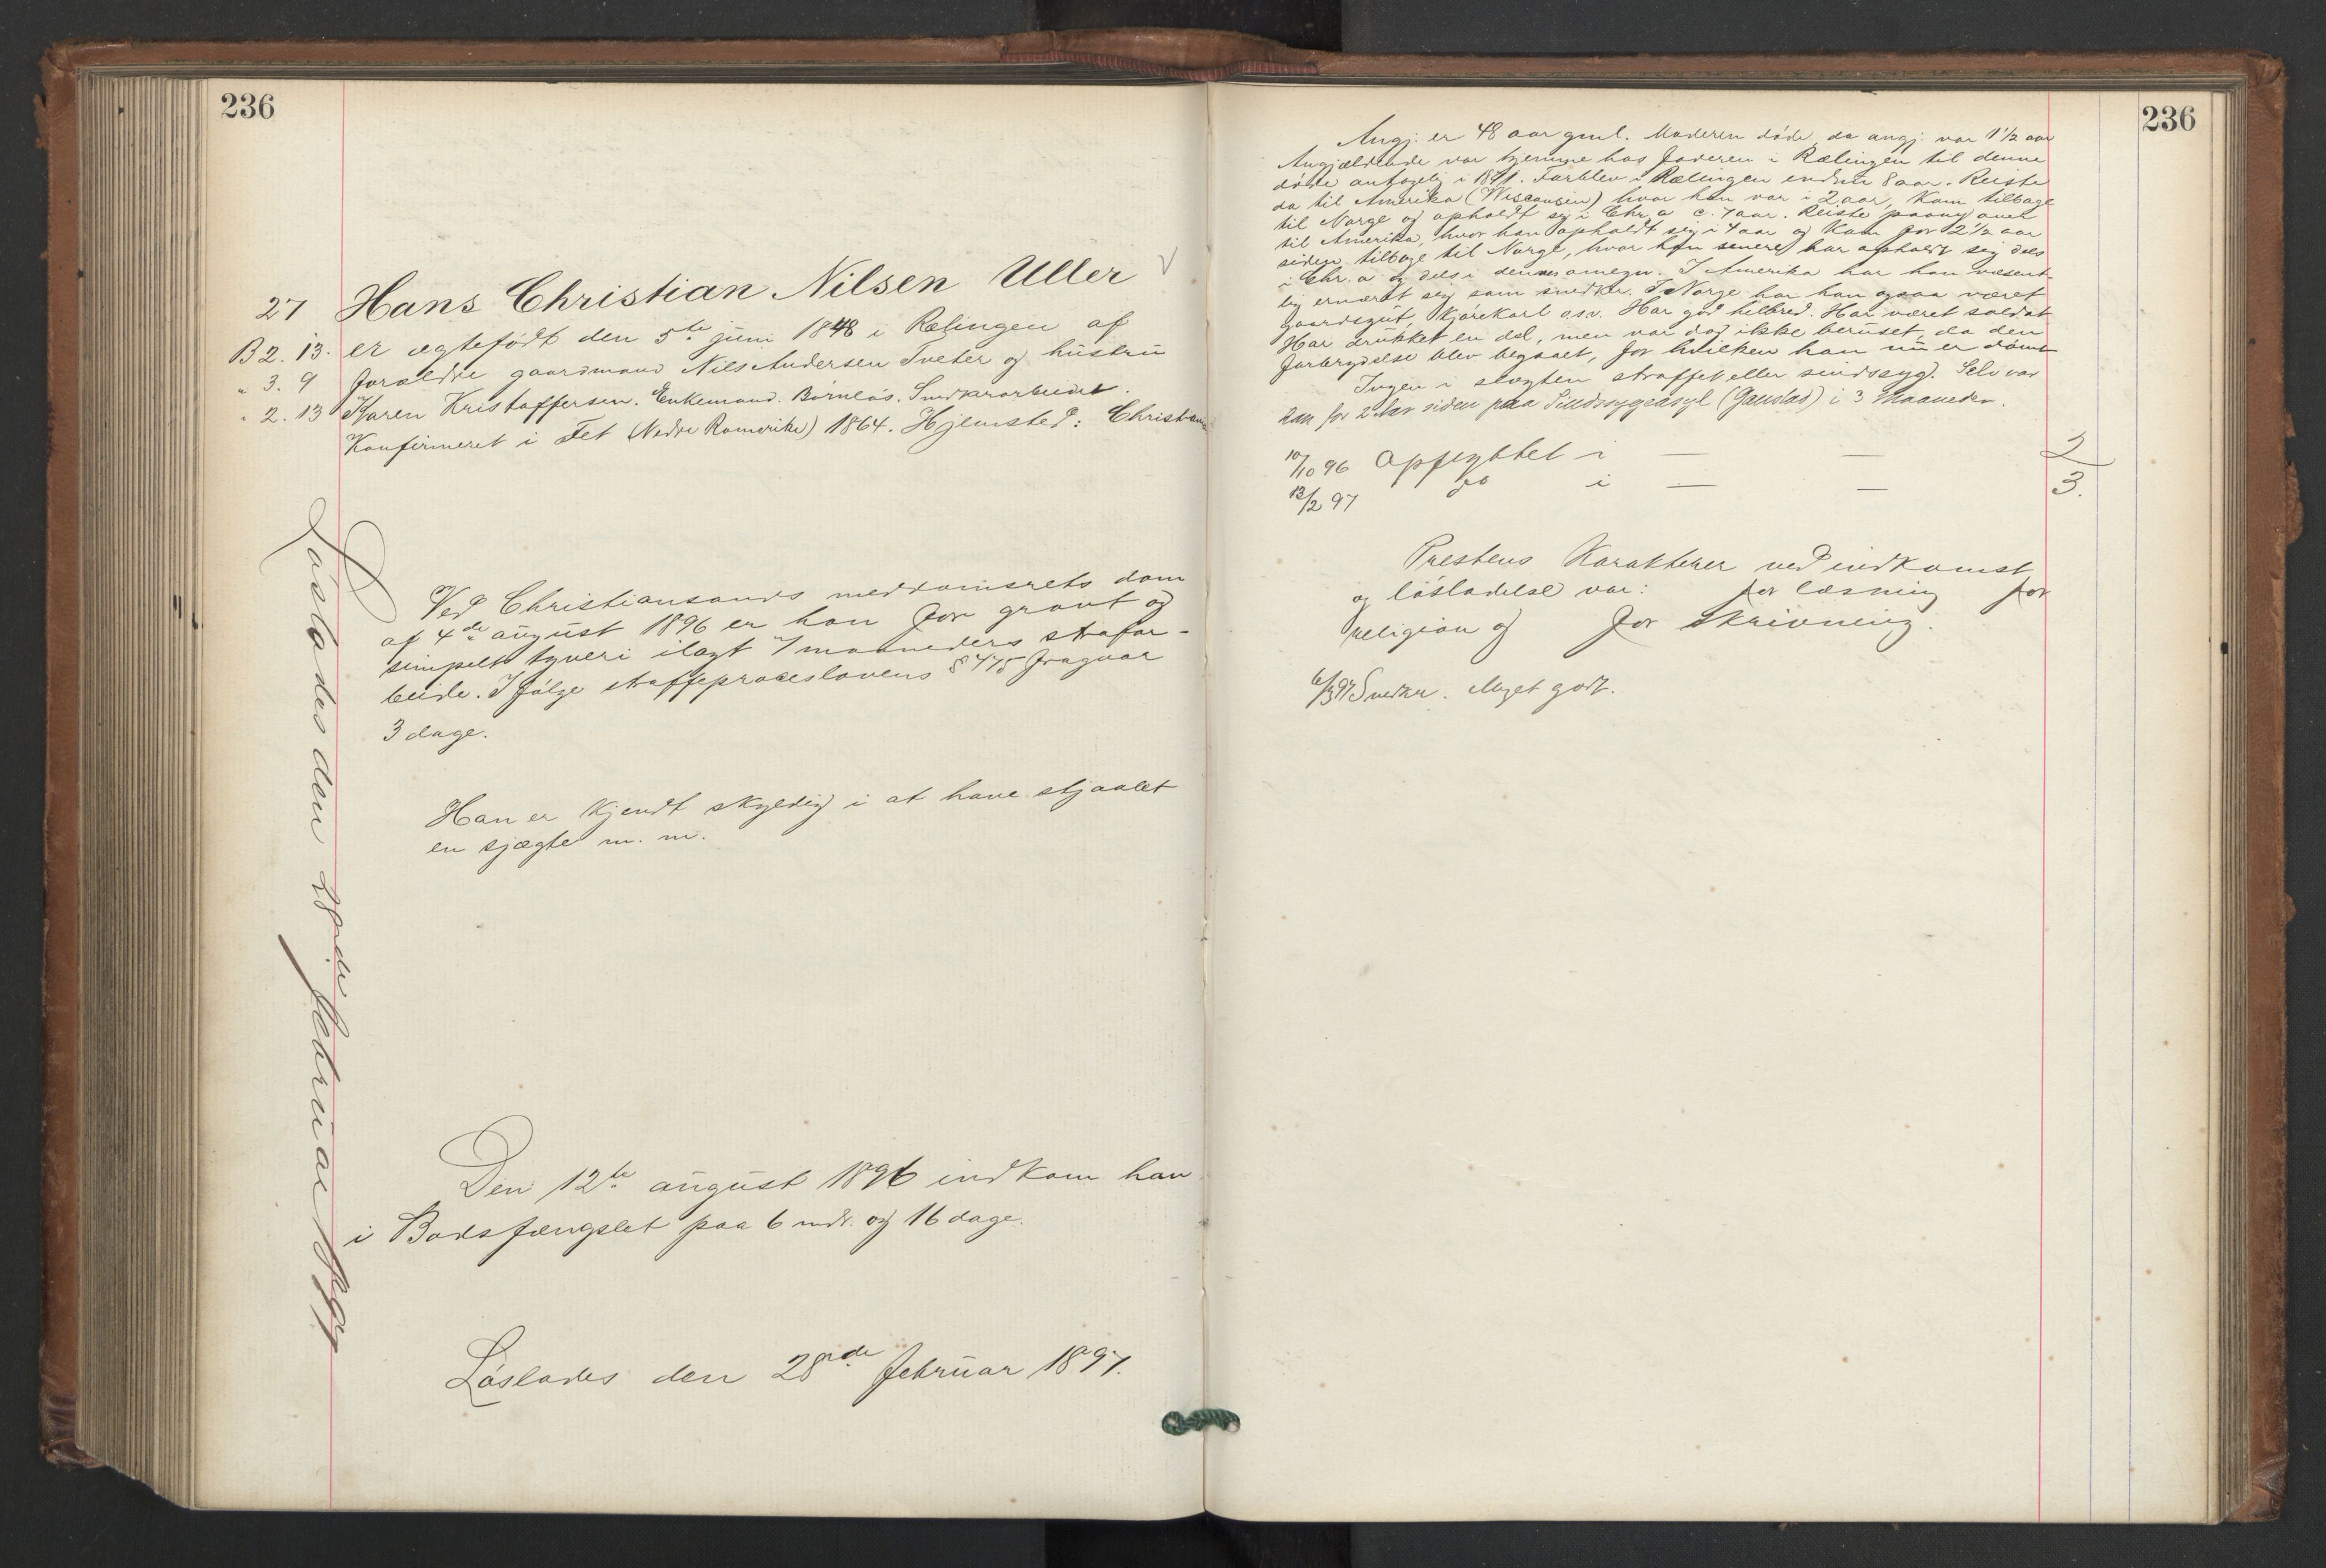 236
27 Hans Christian Nilsen Uller
B 2. 13. er ægtefødt den 5te juni 1848 i Rælingen af
" 3. 9 forældre gaardmand Nils Andersen Tveter og hustru
" 2. 13 Karen Kristoffersen. Enkemand. Børnløs. Snedkerarbeider.
Konfirmeret i Fet (Nedre Romerike) 1864. Hjemsted: Christiania
Løslades den 28nde februar 1897
Ved Christiansands meddomsrets dom
af 4de august 1896 er han for grovt og
simpelt tyveri ilagt 7 maaneders strafar-
beide. I følge straffeproceslovens § 475 fragaar
3 dage.
Han er kjendt skyldig i at have stjaalet
en sjægte m. m.
Den 12te august 1896 indkom han
i Bodsfængslet paa 6 mdr. og 16 dage.
Løslades den 28nde februar 1897.
236
Angj. er 48 aar gml. Moderen døde, da angj. var 1 1/2 aar
Angjældende var hjemme hos faderen i Rælingen til denne
døde antagelig i 1871. Forblev i Rælingen endnu 8 aar. Reiste
da til Amerika (Wisconsin) hvor han var i 2 aar, kom tilbage
til Norge og opholdt sig i Chr.a c. 7 aar. Reiste paany over
til Amerika, hvor han opholdt sig i 4 aar og kom for 2 1/2 aar
siden tilbage til Norge, hvor han senere har opholdt sig dels
i Chr.a og dels i dennes omegn. I Amerika har han væsent-
lig ernæret sig som snedker. I Norge har han ogsaa været
gaardsgut, kjørekarl o.s.v. Har god helbred. Har været soldat
Har drukket en del, men var dog ikke beruset, da den
forbrydelse blev begaaet, for hvilken han nu er dømt
Ingen i slægten straffet eller sindssyg. Selv var
han for 2 Aar siden paa Sindssygeasyl (Gaustad) i 3 Maaneder.
10/10 96 Opflyttet i — — 2
13/2 97 do i — — 3.
Prestens Karakterer ved indkomst
og løsladelse var: for læsning for
religion og for skrivning.
6/3 97 Snedker. Meget godt.